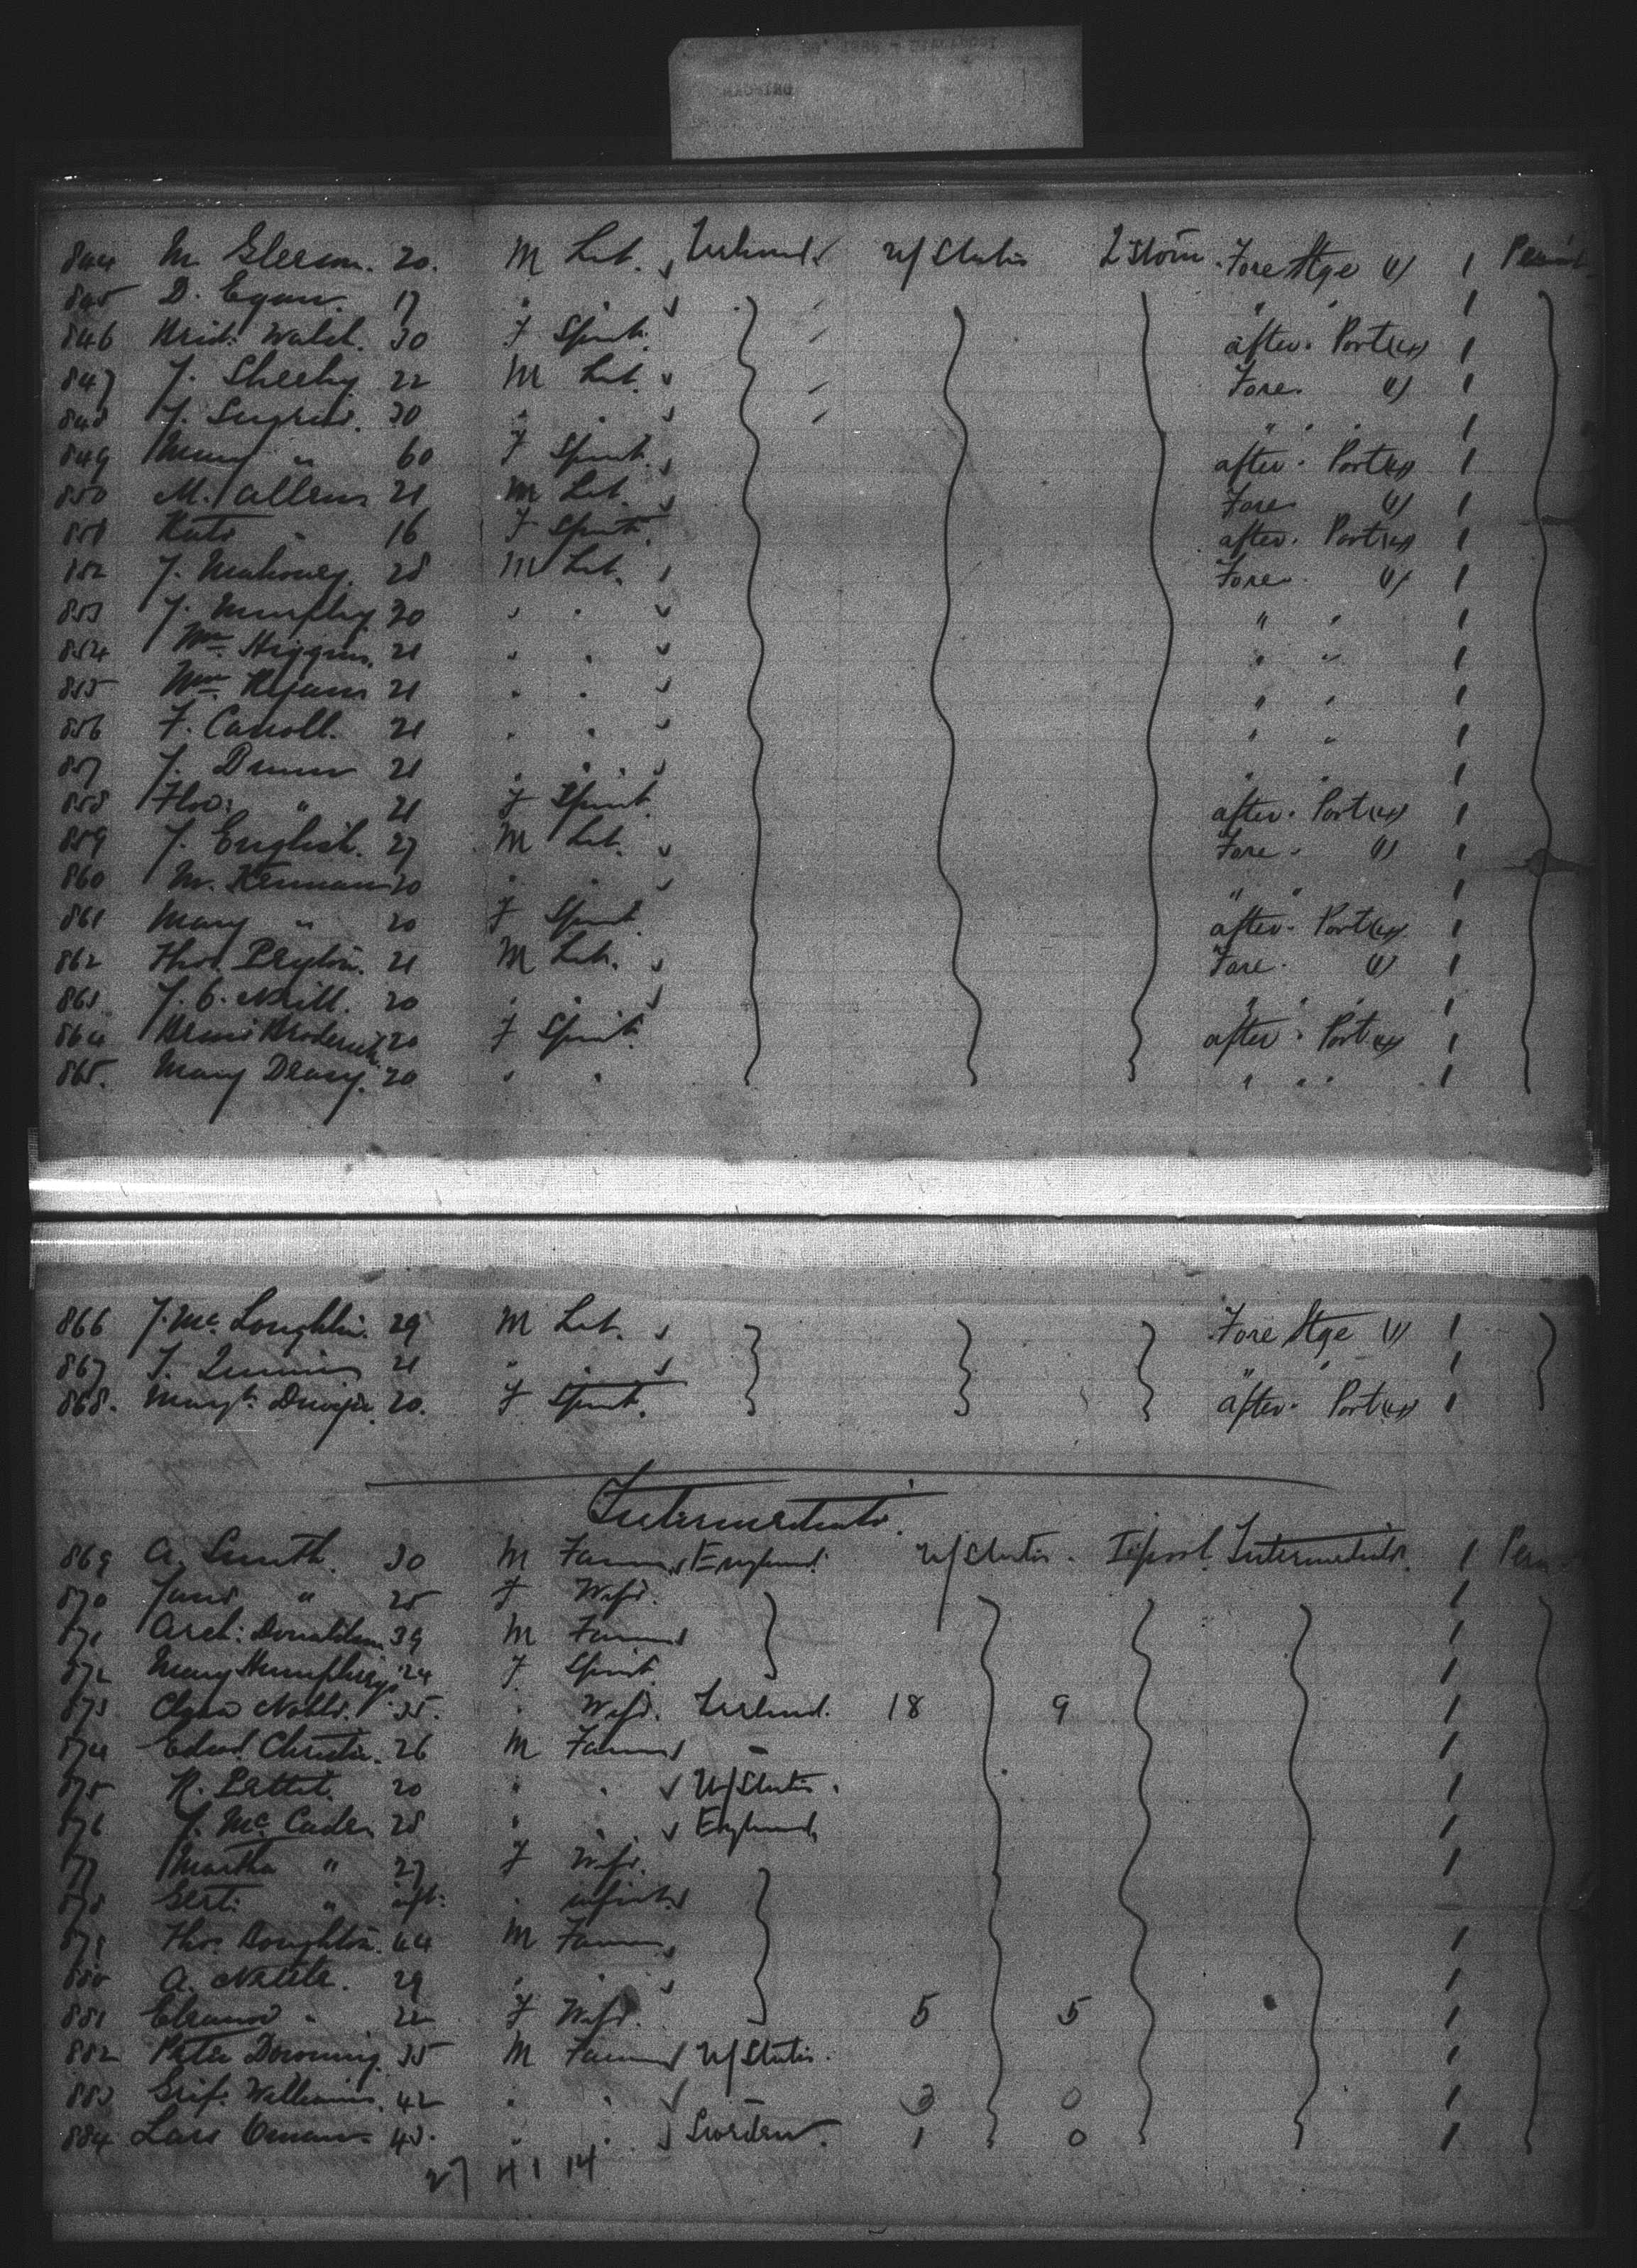 844 M. Gleeson. 20. M Lab. Ireland U/States Q'stown Fore Stge (1) 1
845 D. Egan. 17 " " " " 1
846 Brid: Walsh. 30 F Spinst. after. Port (4) 1
847 J. Sheehy 22 M Lab. Fore. (1) 1
848 J. Sugrue. 30 " " " " 1
849 Mary " 60 F Spinst. after. Port (4) 1
850 M. Allen 21 M Lab. Fore (1) 1
851 Kate " 16 F Spinst. after. Port (4) 1
852 J. Mahoney. 28 M Lab. Fore. (1) 1
853 J. Murphy. 20 " " " " 1
854 Wm Higgins. 21 " " " " 1
855 Wm Ryan 21 " " " " 1
856 F. Carroll. 21 " " " " 1
857 J. Dunn 21 " " " " 1
858 Flo: " 21 F Spinst. after. Port (4) 1
859 J. English. 27 M Lab. Fore. (1) 1
860 M. 20 " " " " 1
861 Mary " 20 F Spinst after. Port (4) 1
862 Thos. Peyton. 21 M Lab. Fore. (1) 1
863. J. O. Neill. 20 " " " " 1
864 Broderick 20 F Spinst. after. Port (4) 1
865. Mary Deasy. 20 " " " " 1
866 J. Mc Loughlin. 29 M Lab. Fore Stge (1) 1
867 21 " " " " 1
868. Margt. 20. F Spinst. after. Port (4) 1
Intermediate.
869 A. Smith. 30 M Farmer England. U/States. L'pool. Intermediate. 1
870 Jane " 25 F Wife. 1
871 Arch: Donaldson 39 M Farmer 1
872 Mary Humphreys 24 F Spinst. 1
873 Clara Noble. 35. " Wife. Ireland. 18 9 1
874 Edwd. Christie. 26 M Farmer " 1
875 R. Pettit. 20 " " U/States. 1
876 J. Mc Cader 28 " " England 1
877 Martha " 27 F Wife. 1
878 Gert: " inft. " infant
879 Thos. Boughton. 44 M Farmer 1
880 A. 29 " " 1
881 Eleanor " 22 F Wife. 5 5 1
882 Peter Downing. 35 M Farmer U/States. 1
883 Grif. Williams. 42 " " " 3 0 1
884 Lars Oman. 43. " " Sweden. 1 0 1
27 41 14